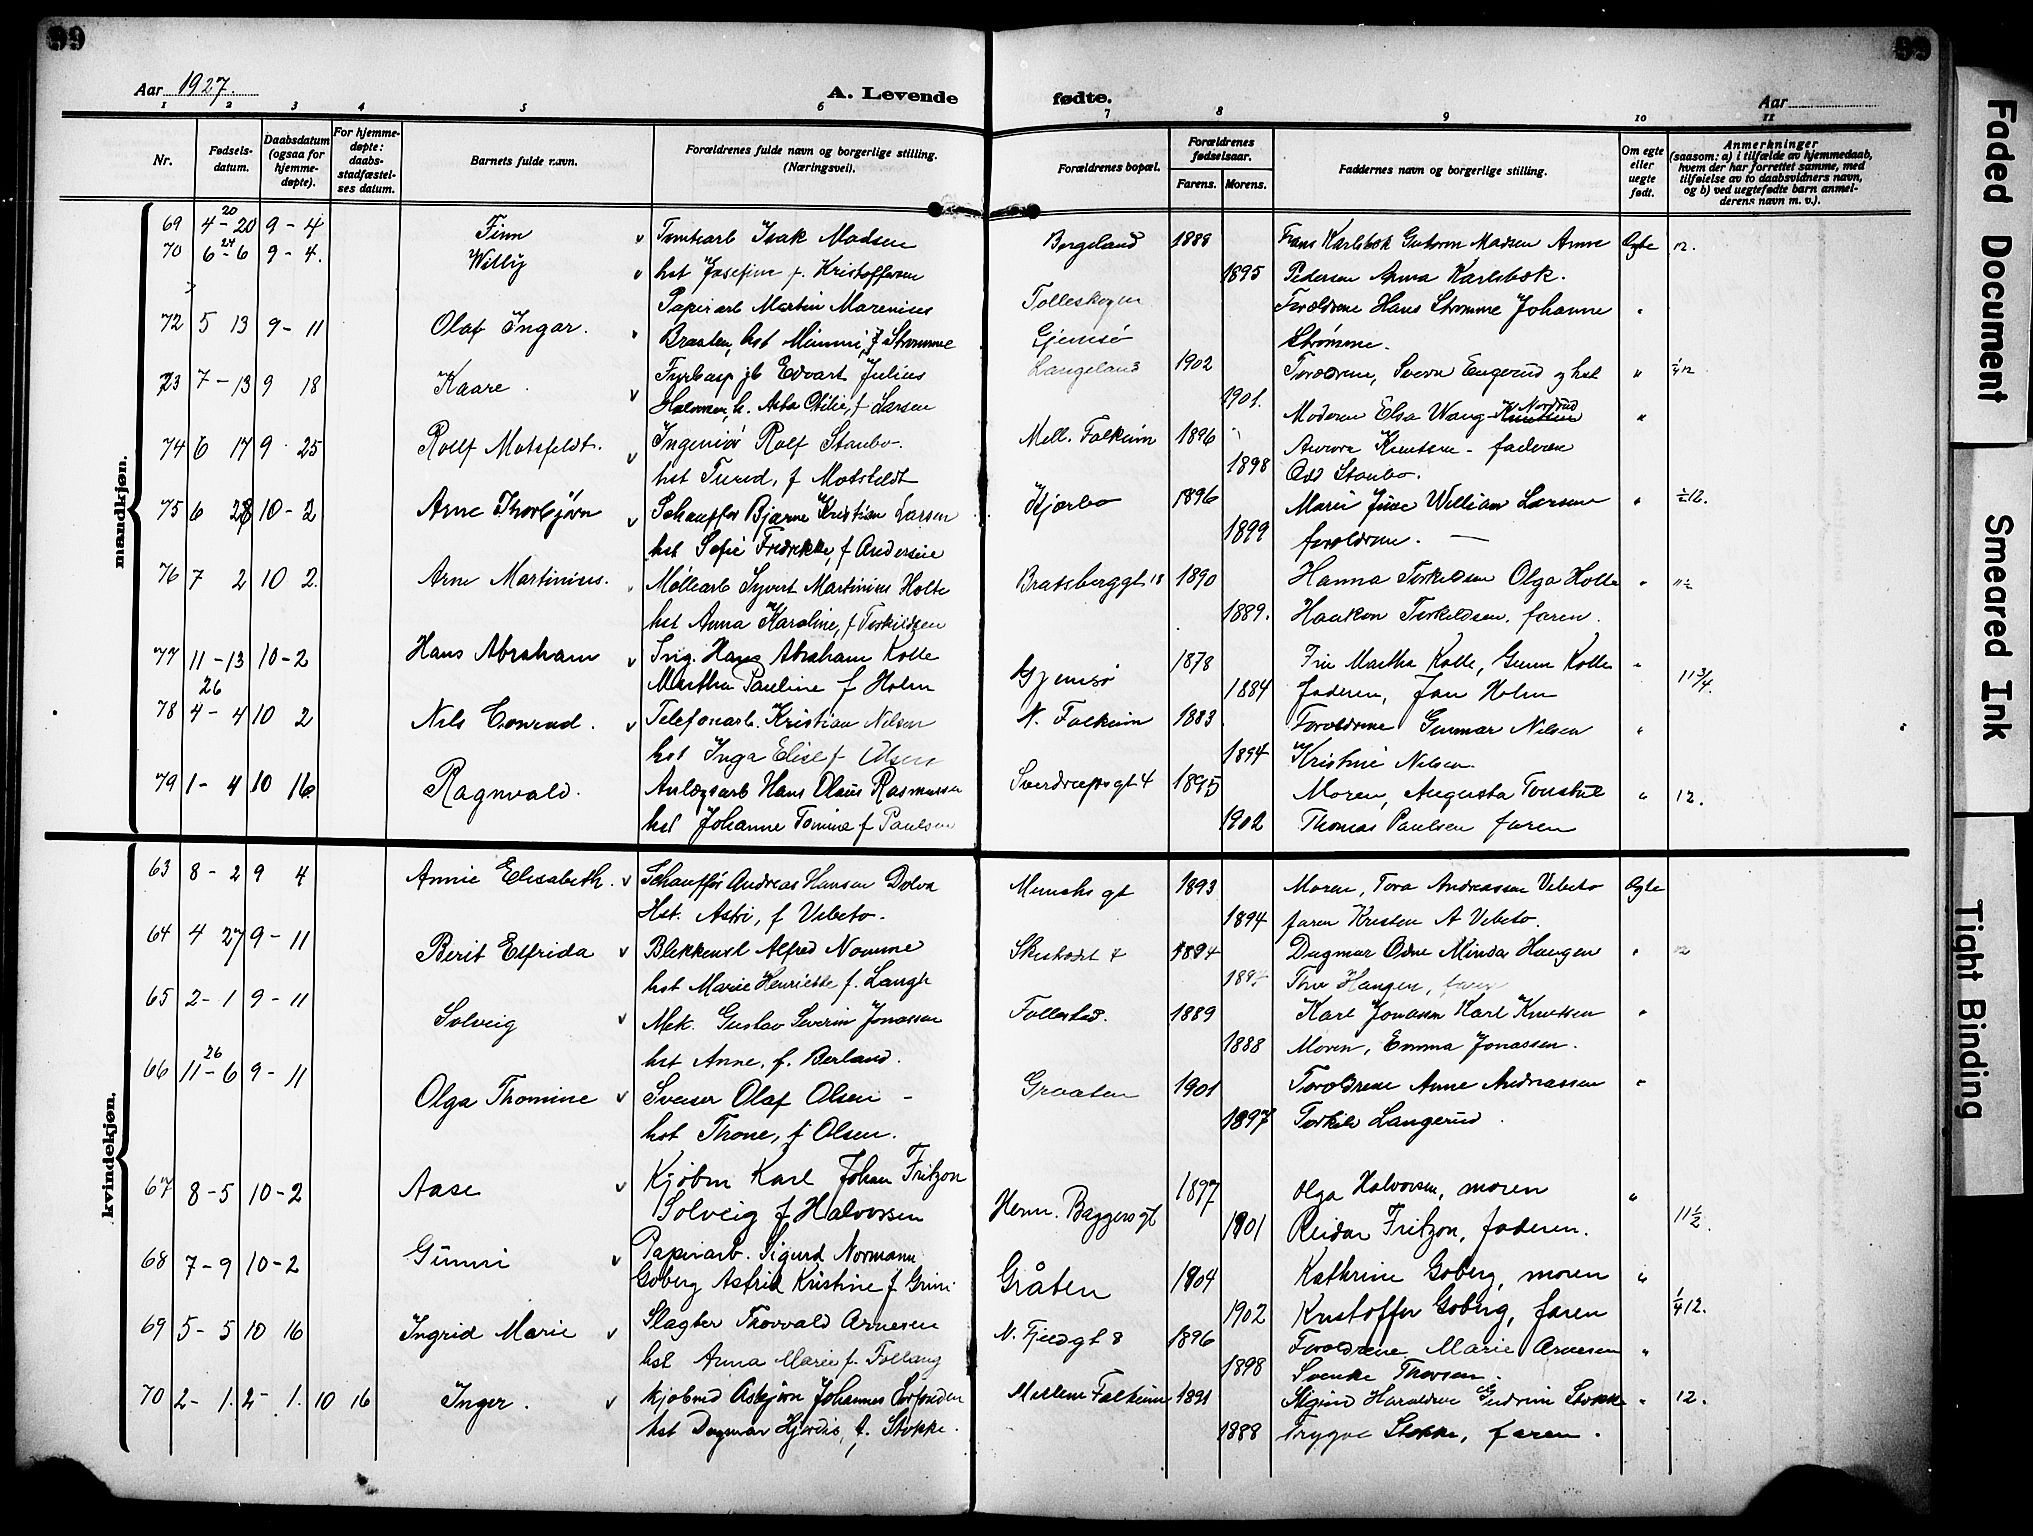 99
99
Aar 1927.
A. Levende fødte.
Aar
1 2 3 4 5 6 7 8 9 10 11
Nr.
Fødsels-
datum.
Daabsdatum
(ogsaa for
hjemme-
døpte).
For hjemme-
døpte:
daabs-
stadfæstel-
ses datum.
Barnets fulde navn.
Forældrenes fulde navn og borgerlige stilling.
(Næringsvei).
Forældrenes bopæl.
Forældrenes
fødselsaar.
Farens. Morens.
Faddernes navn og borgerlige stilling.
Om egte
eller
uegte
født.
Anmerkninger
(saasom: a) i tilfælde av hjemmedaab,
hvem der har forrettet samme, med
tilføielse av to daabsvidners navn,
og b) ved uegtefødte barn anmel-
derens navn m. v.).
mandkjøn.
69 4-20 20 9-4 Finn v Tomtearb Isak Madsen Borgeland 1888 Frans Karlsbok Gudrun Madsen Anne Egte 12.
70 6-6 24 9-4. Willy v hst Josefine f. Kristoffersen 1895 Pedersen Anna Karlsbok.
72 5 13 9-11 Olaf Ingar. Papirarb Martin Marenius Folleskogen Forældrene Hans Strømme Johanne "
Braaten, hst Mimmi, f Strømme Gjemsø Strømme.
73 7-13 9 18 Kaare. v Fyrbasp jb Edvart Julius Langeland 1902 Forældrene, Sverre Engerud og hst " 1/4 12
Halvorsen, h. Asta Otilie, f Larsen 1901. Moderen Elsa Wang Knutsen Norstrud "
74 6 17 9-25 Rolf Motzfeldt. v Ingeniør Rolf Staubo. Mell. Falkum 1896 Aurora Knutsen - faderen
hst Turid, f Motzfeldt 1898 Odd Staubo.
75 6 28 10-2 Arne Thorbjørn v Schauffør Bjarne Kristian Larsen Kjørbo 1896 Marie Juse William Larsen " 1/2 12.
hst Sofie Fredrikke, f Andersen 1899 forældrene.
76 7 2 10 2 Arne Martinius. Møllearb Syvert Martinius Holte Bratsberggt 18 1890 Hanna Torkildsen Olga Holte " 11 1/2
hst Anna Karoline, f Torkildsen 1889. Haakon Torkildsen, faren.
77 11-13 26 10-2 Hans Abraham v Ing. Hans Abraham Kolle Gjemsø 1878 Fru Martha Kolle, Gunn Kolle " 11 3/4.
Martha Pauline f Holm 1884 faderen, Jan Holm
78 4-4 10 2 Nils Conrad. v Telefonarb. Kristian Nilsen N. Falkum 1883 Forældrene Gunnar Nilsen "
hst Inga Elise f Olsen 1894 Kristine Nilsen
79 1-4 10 16 Ragnvald. Anlægsarb Hans Olaus Rasmussen Sverdrupsgt 4 1895 Moren, Augusta Tonstul " 12.
hst Johanne Tomine f Paulsen 1902 Thomas Paulsen faren
kvindekjøn.
63 8-2 9 4 Annie Elisabeth. v Schauffør Andreas Hansen Dolva Munchs gt 1893 Moren, Tora Andreassen Vibeto Egte
Hst. Astri, f Vibeto. 1894 faren Kristen A Vibeto.
64 4 27 9-11 Berit Elfrida v Blekkensl Alfred Nomme 1894 Dagmar Odne Minda Haugen " 12
hst Marie Henriette f. Langk Thor Haugen, faren
65 2-1 9-11 Solveig v Mek. Gustav Severin Jonassen Follestad. 1889 Karl Jonassen Karl Knutsen "
hst Anne, f. Berland. 1888 Moren, Emma Jonassen.
66 11-6 26 9-11 Olga Thomine v Sveiser Olaf Olsen - Graaten 1901 Forældrene Anne Andreassen "
hst Thone, f Olsen. 1897 Torkild Langerud.
67 8-5 10-2 Aase v Kjøbm Karl Johan Fritzon Herm. Baggers gt 1897 Olga Halvorsen, moren " 11 1/2.
Solveig f Halvorsen 1901 Reidar Fritzon, faderen.
68 7-9 10-2 Gunni v Papirarb. Sigurd Normann Gråten 1904 Kathrine Goberg, moren "
Goberg Astrid Kristine f Grini 1902 Kristoffer Goberg, faren 1/4 12.
69 5-5 10 16 Ingrid Marie v Slagter Thorvald Arnesen N. Fjeldgt 8 1896 Forældrene Marie Arnesen "
hst Anna Marie f. Follaug 1898 Svenke Thovsen.
70 2-1. 2-1. 10 16 Inger. v Kjøbmd Asbjørn Johannes Mellem Falkum 1891 Sigrid Haraldsen Gudrun Stokke " 12.
hst Dagmar Hjørdis, f. Stokke. 1888 Trygve Stokke, faren.
Faded Document
Smeared Ink
Tight Binding